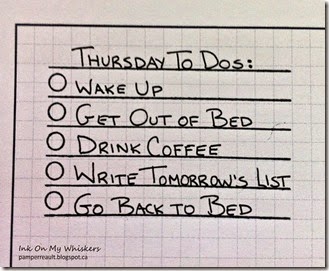 THURSDAY TO DOS:
WAKE UP
GET OUT OF BED
DRINK COFFEE
WRITE TOMORROW'S LIST
GO BACK TO BED
Ink On My Whiskers
pamperreault.blogspot.ca